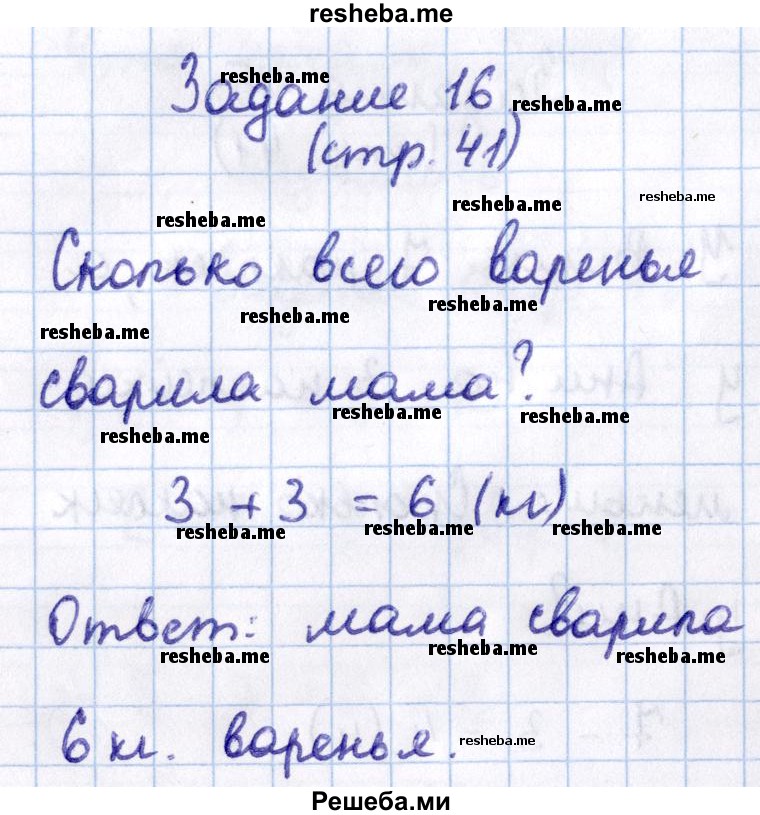 resheba.me
resheba.me
Задание 16
resheba.me
(стр. 41)
resheba.me
resheba.me
resheba.me
Сколько всего варенья
resheba.me
resheba.me
resheba.me
сварила мама?
resheba.me
resheba.me
resheba.me
3 + 3 = 6 (кг)
resheba.me
resheba.me
resheba.me
Ответ: мама сварила
resheba.me
resheba.me
resheba.me
6 кг. варенья.
resheba.me
Решеба.ми